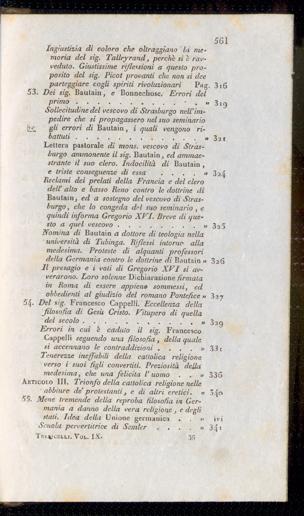 561
Ingiustizia di coloro che oltraggiano la me-
moria del sig. Talleyrand, perchè si è rav-
veduto. Giustissime riflessioni a questo pro-
posito del sig. Picot provanti che non si dee
parteggiare cogli spiriti rivoluzionari Pag. 316
53. Dei sig. Bautain, e Bonnechose. Errori del
primo . . . . . . . . . . . . " 319
Sollecitudine del vescovo di Strasburgo nell'im-
pedire che si propagassero nel suo seminario
gli errori di Bautain, i quali vengono ri-
battuti . . . . . . . . . . . . " 321
Lettera pastorale di mons. vescovo di Stras-
burgo ammonente il sig. Bautain, ed ammae-
strante il suo clero. Indocilità di Bautain,
e triste conseguenze di essa . . . . . " 324
Reclami dei prelati della Francia e del clero
dell'alto e basso Reno contro le dottrine di
Bautain, ed a sostegno del vescovo di Stras-
burgo, che lo congeda del suo seminario, e
quindi informa Gregorio XVI. Breve di que-
sto a quel vescovo . . . . . . . . " 325
Nomina di Bautain a dottore di teologia nella
università di Tubinga. Riflessi intorno alla
medesima. Proteste di alquanti professori
della Germania contro le dottrine di Bautain " 326
Il presagio e i voti di Gregorio XVI si av-
verarono. Loro solenne Dichiarazione firmata
in Roma di essere appieno sommessi, ed
obbedienti al giudizio del romano Pontefice " 327
54. Del sig. Francesco Cappelli. Eccellenza della
filosofia di Gesù Cristo. Vitupero di quella
del secolo . . . . . . . . . . . " 329
Errori in cui è caduto il sig. Francesco
Cappelli seguendo una filosofia, della quale
si accennano le contraddizioni . . . . " 331
Tenerezze ineffabili della cattolica religione
verso i suoi figli convertiti. Preziosità della
medesima, che una felicita l'uomo . . . " 336
ARTICOLO III. Trionfo della cattolica religione nelle
abbiure de' protestanti, e di altri eretici. " 340
55. Mene tremende della reproba filosofia in Ger-
mania a danno della vera religione, e degli
stati. Idea della Unione germanica . . " ivi
Scuola pervertitrice di Semler . . . . " 341
TREZZICELLI. VOL. IX. 36